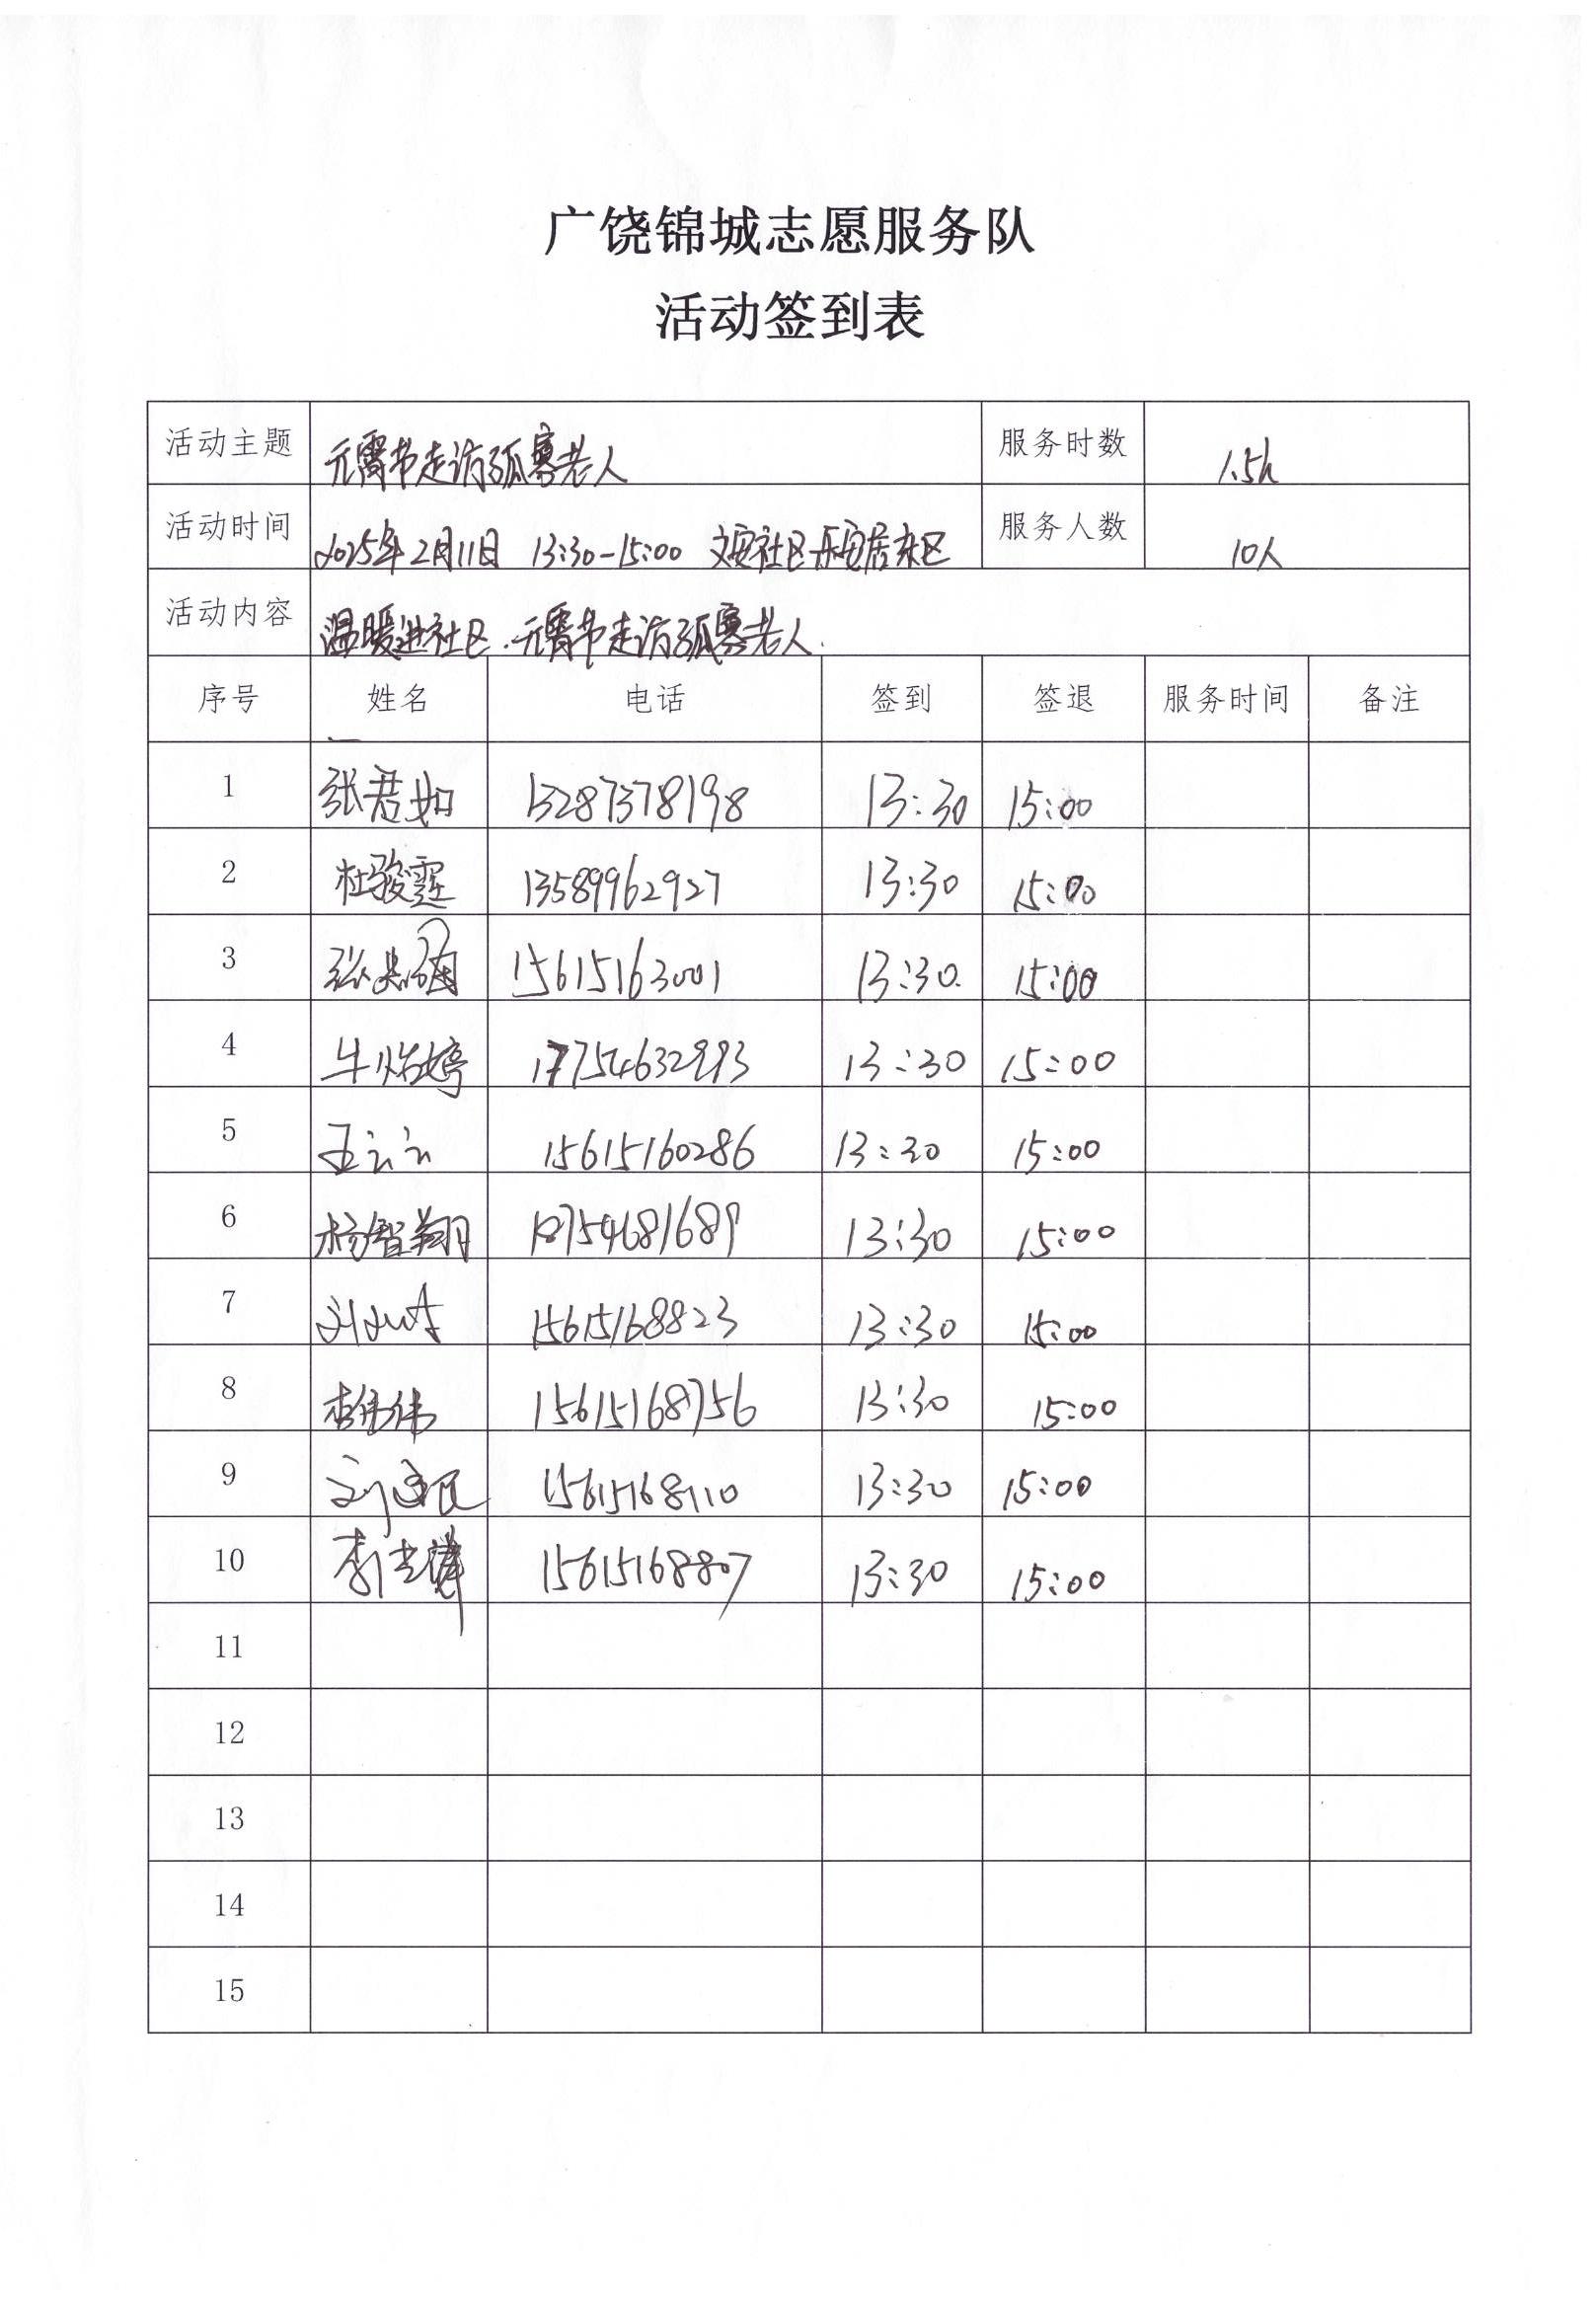 广饶锦城志愿服务队
活动签到表
活动主题 元霄节走访孤寡老人 服务时数 1.5h
活动时间 2025年2月11日 13:30-15:00 文安社区乐安居东区 服务人数 10人
活动内容 温暖进社区.元霄节走访孤寡老人.
序号 姓名 电话 签到 签退 服务时间 备注
1 张君如 13287378198 13:30 15:00
2 杜骏霆 13589962927 13:30 15:00
3 张 15615163001 13:30. 15:00
4 牛怡婷 17754632993 13:30 15:00
5 王云云 15615160286 13:30 15:00
6 杨智翔 18754681689 13:30 15:00
7 刘 15615168823 13:30 15:00
8 李伟伟 15615168756 13:30 15:00
9 刘建民 15615168110 13:30 15:00
10 李 15615168807 13:30 15:00
11
12
13
14
15